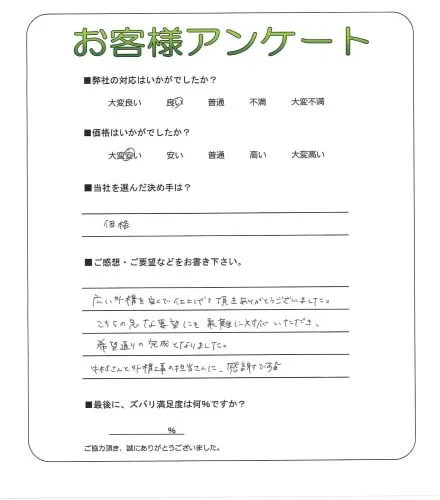 お客様アンケート
■弊社の対応はいかがでしたか?
大変良い 良い 普通 不満 大変不満
■価格はいかがでしたか?
大変安い 安い 普通 高い 大変高い
■当社を選んだ決め手は?
価格
■ご感想・ご要望などをお書き下さい。
広い外構を安くで仕上げて頂きありがとうございました。
こちらの急な要望にも 対応いただき、
希望通りの完成となりました。
木村さんと外構工事の担当さんに、感謝です
■最後に、ズバリ満足度は何%ですか?
%
ご協力頂き、誠にありがとうございました。